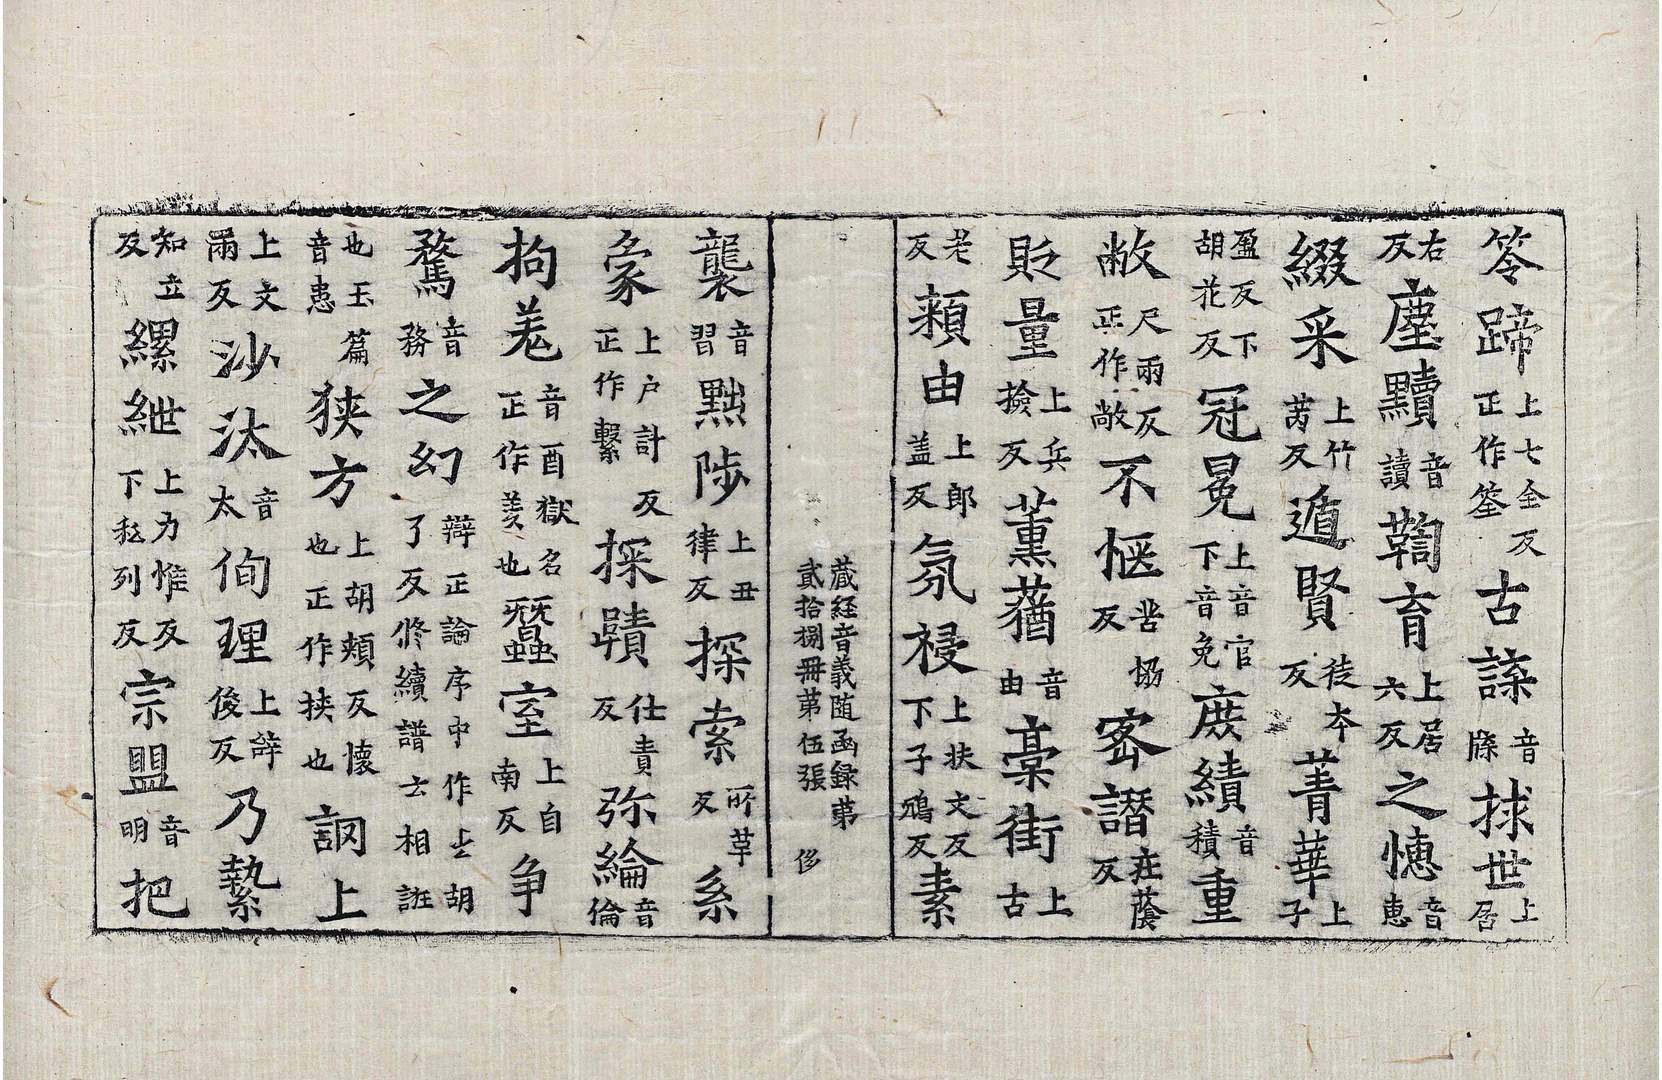 筌蹄上七全反正作筌古諜音牒捄世上居
右反塵黷音讀鞫育上居六反之憓音惠
綴采上竹芮反遁賢上徒夲反菁華上子
盈反下胡花反冠冕上音官下音免庻績音積重
敝尺兩反正作敞不愜苦協反宻譖莊蔭反
貶量上兵撿反薰蕕音由藁街上古
老反賴由上郎盖反氛祲上扶文反下子鴆反素
蔵経音義随函録苐
貳拾捌冊苐伍張 侈
襲音習黜陟上丑律反探索所革反系
象上户計反正作繫探賾仕責反弥綸音倫
拘羗音酉獄名正作羑也蠶室上自南反争
騖音務之幻辯正論序中作㞢胡了反修續譜云相誑
也玉篇音患狭方上胡頰反懷也正作挾也誷上
上文兩反沙汰音太侚理上辝俊反乃縶
知立反縲紲上力惟反下私列反宗盟音明把